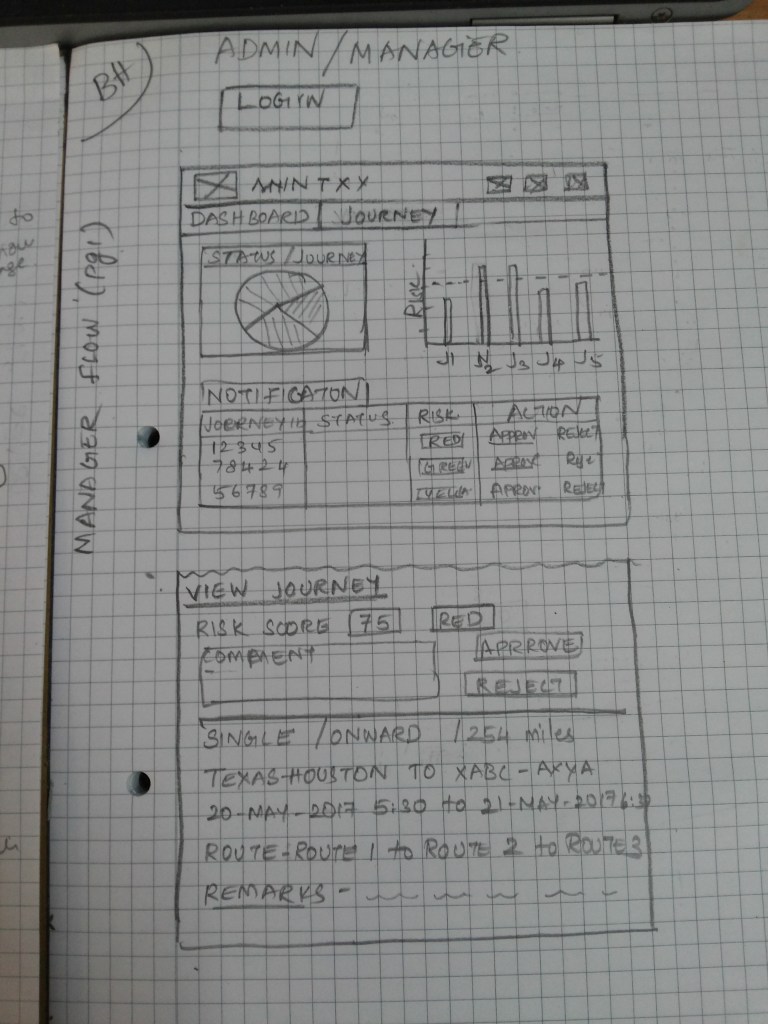 ADMIN / MANAGER
BH
LOGIN
MANAGER FLOW (Pg1)
DASHBOARD | JOURNEY |
STATUS / JOURNEY
RISK
J1 J2 J3 J4 J5
NOTIFICATON
JOURNEY ID STATUS RISK ACTION
12345 RED APPROV REJECT
78424 APPROV REJC
56789 APPROV REJECT
VIEW JOURNEY
RISK SCORE 75 RED
COMMENT APRROVE
REJECT
SINGLE / ONWARD / 254 miles
TEXAS-HOUSTON TO XABC - AXYA
20-MAY-2017 5:30 to 21-MAY-2017
ROUTE - ROUTE 1 to ROUTE 2 to ROUTE 3
REMARKS -